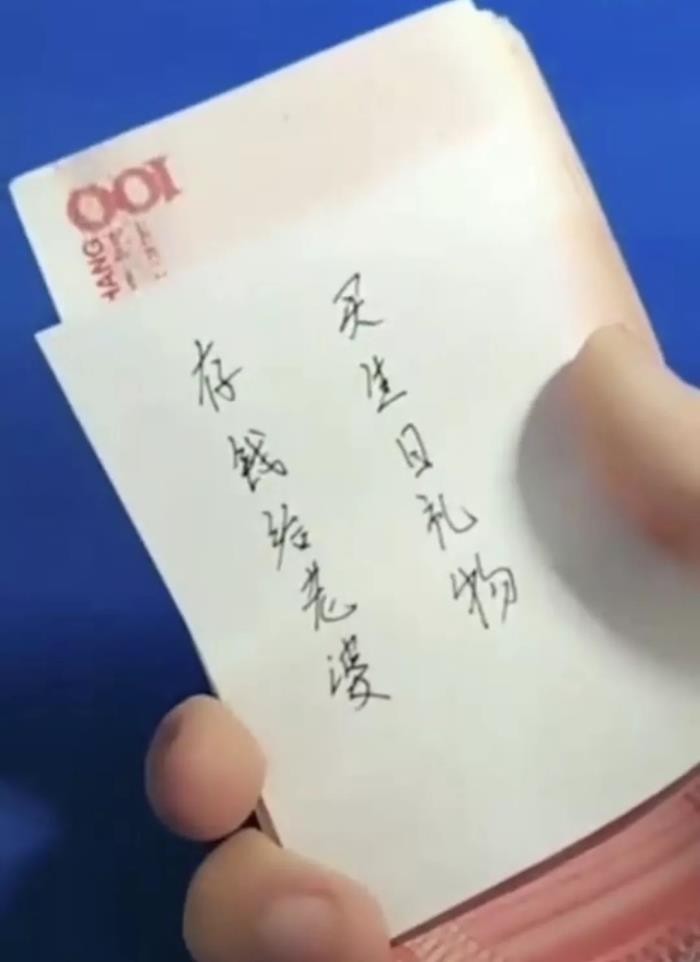 100
HANG
存钱给老婆
买生日礼物